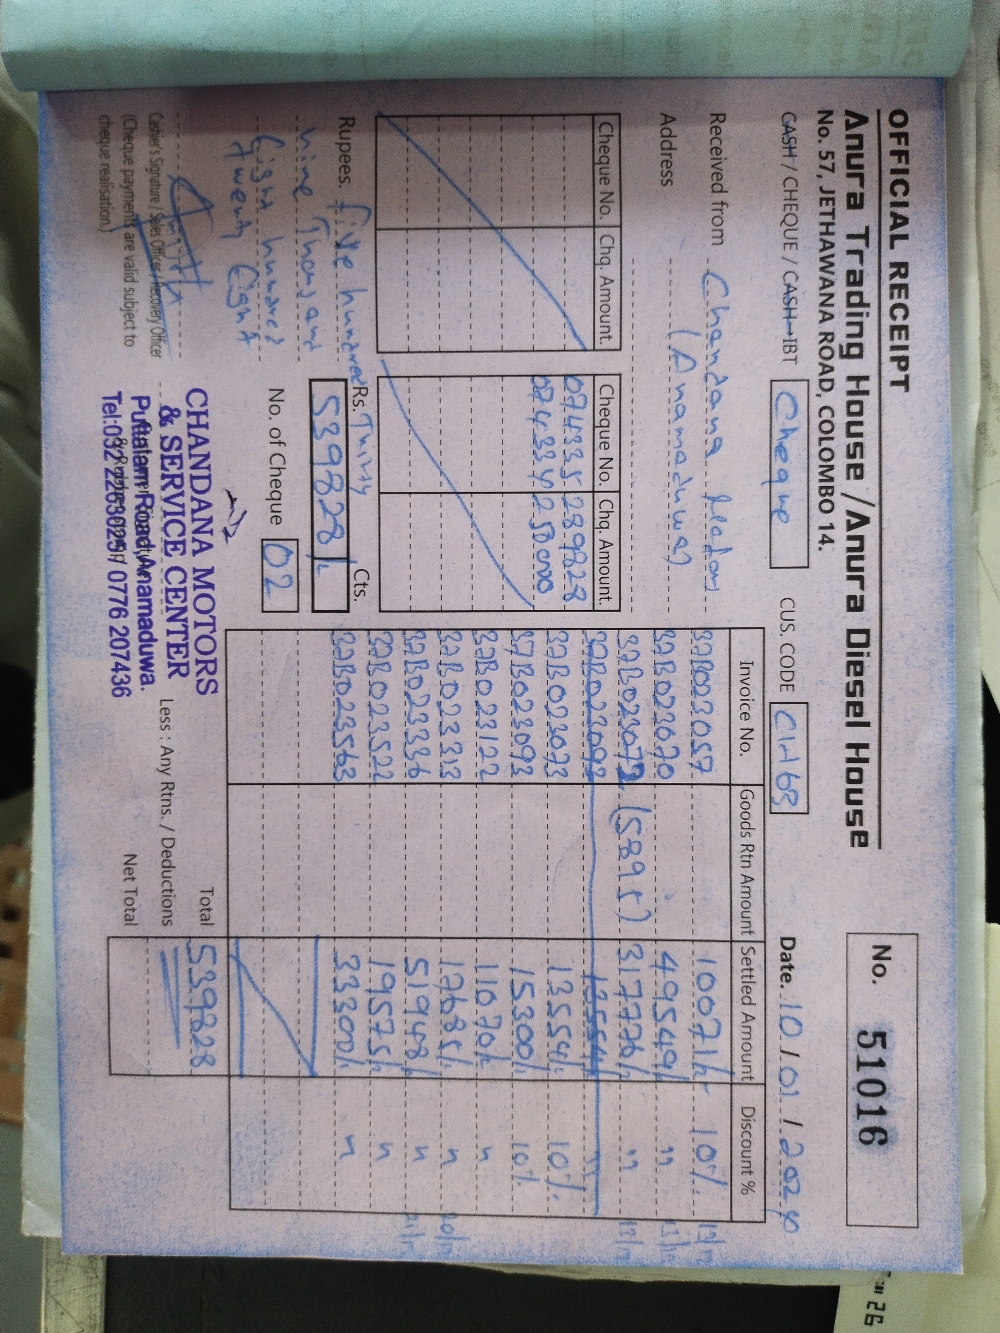 OFFICIAL RECEIPT
No. 51016
Anura Trading House / Anura Diesel House
No. 57, JETHAWANA ROAD, COLOMBO 14.
CASH / CHEQUE / CASH-IBT Cheque CUS. CODE CH63 Date. 10/01/2024
Received from Chandana Motors
Address (Anamaduwa)
Cheque No. Chq. Amount. Cheque No. Chq. Amount.
074335 289828
074334 250000
Rupees. five hundred Thirty
nine Thousand
Eight hundred
twenty Eight
Rs. Cts.
539828/-
No. of Cheque 02
Cashier's Signature / Sales Officer / Recovery Officer
(Cheque payments are valid subject to
cheque realisation.)
CHANDANA MOTORS
& SERVICE CENTER
Puttalam Road, Anamaduwa.
Tel:032 2263025 / 0776 207436
Invoice No. Goods Rtn Amount Settled Amount Discount %
32B023057 10071/- 10%
32B023070 49549/- "
32B023072 (58957) 317776/- "
32B023092 13554/- "
32B023073 13554/- 10%
32B023093 15300/- 10%
32B023122 11070/- "
32B023313 17685/- "
32B023336 51948/- "
32B023522 19575/- "
32B023563 33300/- "
Total 539828
Less : Any Rtns. / Deductions
Net Total